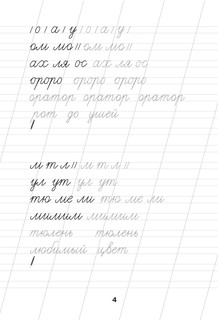 / О / А / У / О / А / У /
ом мо // ом мо //
ах ля ос ах ля ос
ороро ороро ороро
оратор оратор оратор
рот до ушей
/
м т л // м т л //
ул ут ул ут
тю ме ли тю ме ли
мишим мишим
тюлень тюлень
любимый цвет
/
4